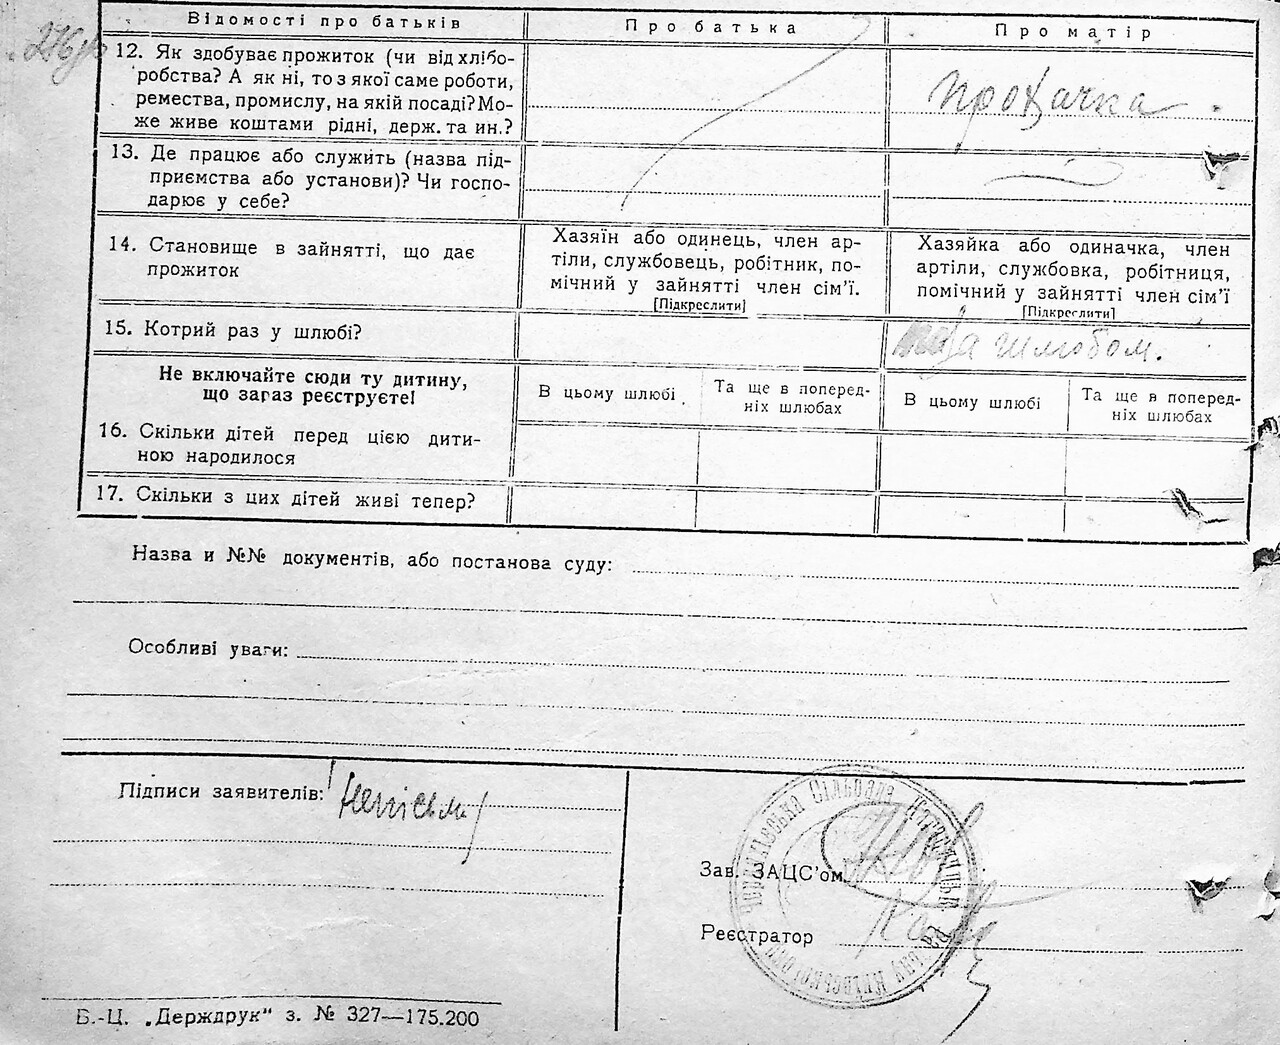 Відомості про батьків
Про батька
Про матір
12. Як здобуває прожиток (чи від хлібо-
робства? А як ні, то з якої саме роботи,
ремества, промислу, на якій посаді? Мо-
же живе коштами рідні, держ. та ин.?
прохачка
13. Де працює або служить (назва під-
приємства або установи)? Чи госпо-
дарює у себе?
14. Становище в зайнятті, що дає
прожиток
Хазяїн або одинець, член ар-
тіли, службовець, робітник, по-
мічний у зайнятті член сім’ї.
[Підкреслити]
Хазяйка або одиначка, член
артіли, службовка, робітниця,
помічний у зайнятті член сім’ї
[Підкреслити]
15. Котрий раз у шлюбі?
поза шлюбом.
Не включайте сюди ту дитину,
що зараз реєструєте!
В цьому шлюбі
Та ще в поперед-
ніх шлюбах
В цьому шлюбі
Та ще в поперед-
ніх шлюбах
16. Скільки дітей перед цією дити-
ною народилося
17. Скільки з цих дітей живі тепер?
Назва и №№ документів, або постанова суду:
Особливі уваги:
Підписи заявителів:
Зав. ЗАЦС’ом
Реєстратор
Сільрада
Б.-Ц. „Держдрук“ з. № 327—175.200